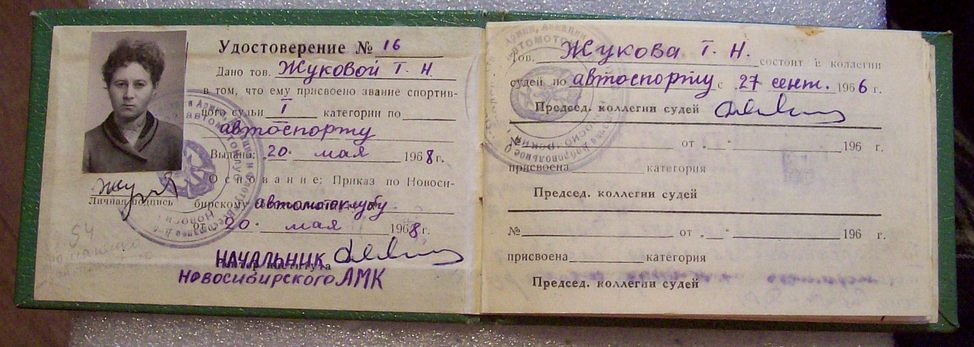 Удостоверение № 16
Дано тов. Жуковой Т. Н.
в том, что ему присвоено звание спортив-
ного судьи I категории по
автоспорту
Выдано 20 мая 1968 г.
Основание: Приказ по Новоси-
бирскому автомотоклубу
от 20 мая 1968 г.
Личная подпись
НАЧАЛЬНИК
института
Новосибирского АМК
Тов. Жукова Т. Н.
состоит в коллегии
судей по автоспорту с 27 сент. 1966 г.
Председ. коллегии судей
№ от 196 г.
присвоена категория
Председ. коллегии судей
№ от 196 г.
присвоена категория
Председ. коллегии судей